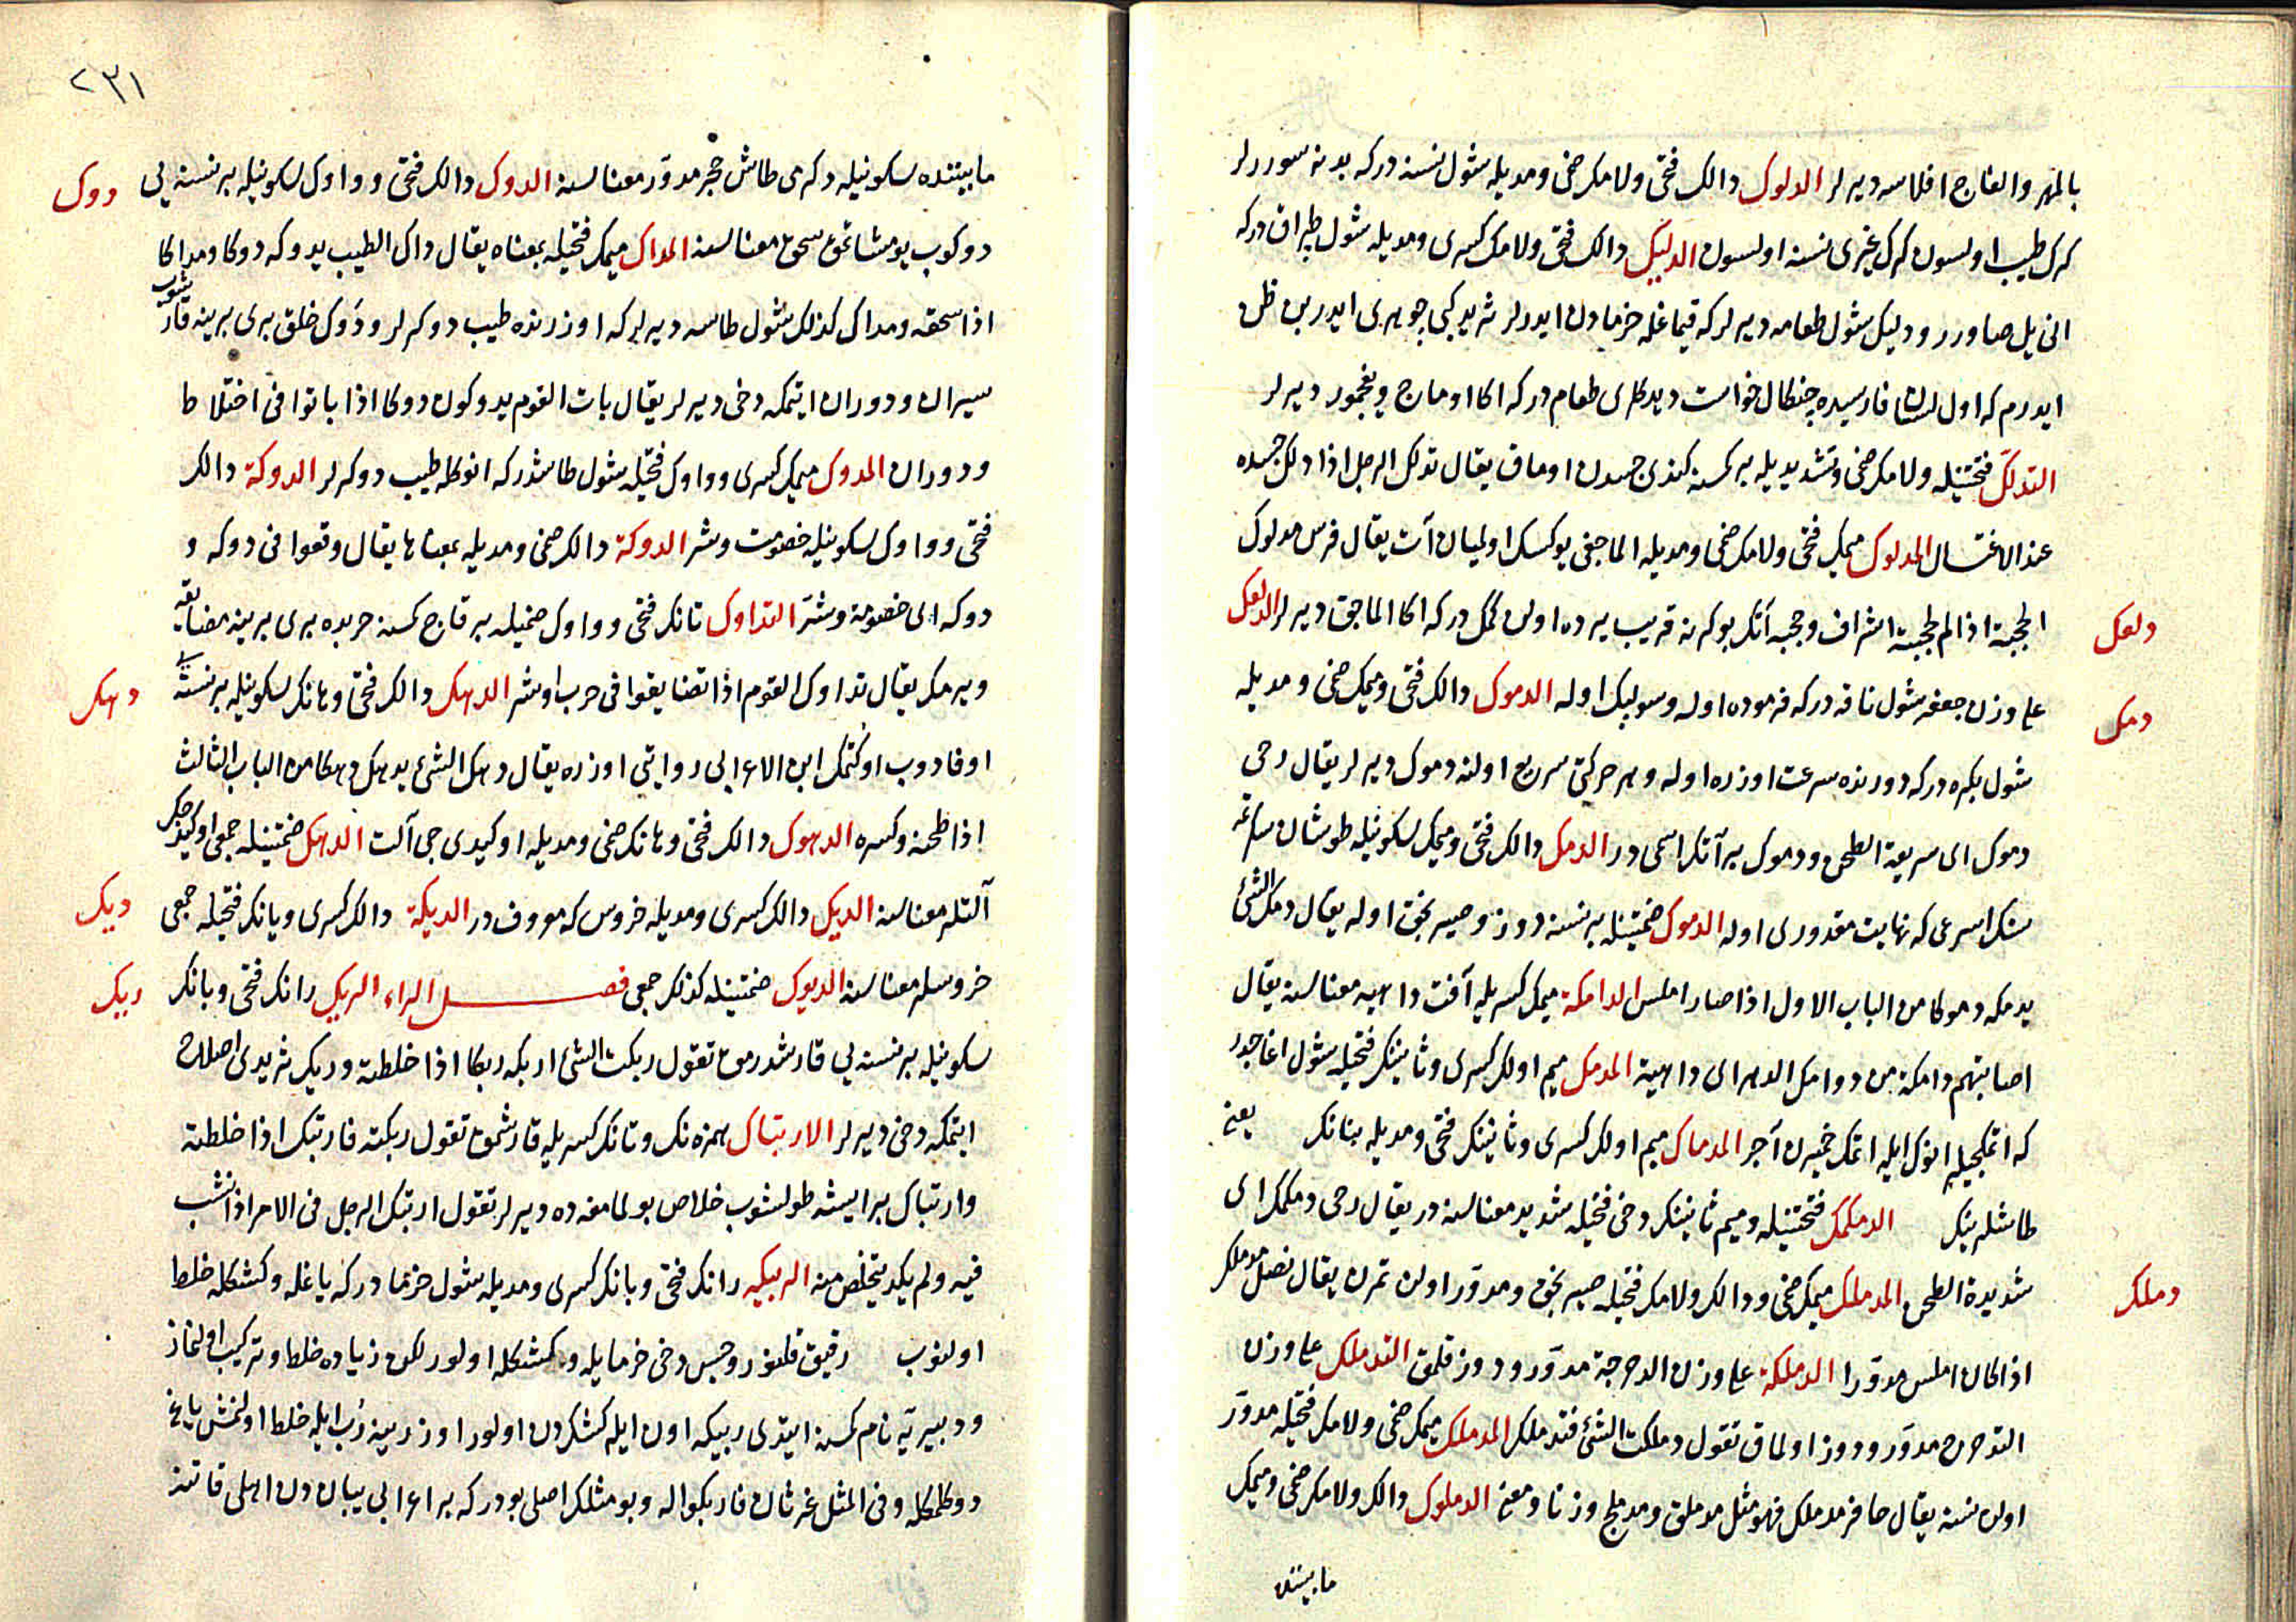 بالمهر والفاج افلاسه ديرلر الدلوك دالك فتحى ولامك ضمى ومديله شول نسنه دركه بدنه سوررلر
كرك طيب اولسون كرك غيرى نسنه اولسون الدليك دالك فتحى ولامك كسرى ومديله شول طپراق دركه
انى يل صاورر ودليك شول طعامه ديرلر كه قيماغله خرمادن ايدرلر ثريد كبى جوهرى ايدر بن ظن
ايدرم كه اول لسان فارسيده چنكال خواست ديدكلرى طعام دركه اكا اوماج وبغمور ديرلر
التدلّك فتحتينله ولامك ضمى وتشديديله بر كسنه كندى جسدن اومق يقال تدلك الرجل اذا دلك جسده
عند الاغتسال المدلوك ميمك فتحى ولامك ضمى ومديله الماجغى يوكسك اولميان آت يقال فرس مدلوك
الحجبة اذا لم لحجبته اشراف وحجبه آتك بوكرنه قريب يرده اولان كمك دركه اكا الماجق ديرلر الدلعك
دلعك
على وزن جعفر شول ناقه دركه فرموده اوله وسولپك اوله الدموك دالك فتحى وميمك ضمى ومديله
دمك
شول بكره دركه دورنده سرعت اوزره اوله وهر حركتى سريع اولنه دموك ديرلر يقال رحى
دموك اى سريعة الطحن ودموك بر آتك اسمى در الدمك دالك فتحى وميمك سكونيله طوشان سكرتمه
سنك اسرعى كه نهايت مقدورى اوله الدموك ضمتينله بر نسنه دوز وصيرنجق اوله يقال دمك الشئ
يدمك دموكا من الباب الاول اذا صار املس الدامكة ميمك كسريله آفت داهيه معناسنه يقال
اصابتهم دامكة من دوامك الدهر اى داهية المدمك ميم اولك كسرى وثانينك فتحيله شول اغاجدر
كه اتمكجيلر انوك ايله اتمك خميرن آچر المدماك ميم اولك كسرى وثانينك فتحى ومديله بنانك يعنى
طاشلرينك الدمكمك فتحتينله وميم ثانينك دخى فتحيله شديد معناسنه در يقال رحى دمكمك اى
شديدة الطحن المدملك ميمك ضمى ودالك ولامك فتحيله صيرنجق ومدوّر اولان تمرن يقال نصل مدملك
دملك
اذا كان املس مدوّرا الدملكة على وزن الدحرجة مدوّر ودوز قلمق التدملك على وزن
التدحرج مدوّر ودوز اولماق تقول دملكت الشئ فتدملك المدملك ميمك ضمى ولامك فتحيله مدوّر
اولان نسنه يقال حافر مدملك فهو مثل مدملق ومدملج وزنا ومعنى الدملوك دالك ولامك ضمى وميمك
مابيننده
٢٣١
مابيننده سكونيله دكرمى طاش حجر مدوّر معناسنه الدوك دالك فتحى وواوك سكونيله بر نسنه يى
دوك
دوكوب يومشاتمق سحق معناسنه المداك ميمك فتحيله بمعناه يقال داك الطيب يدوكه دوكا ومداكا
اذا سحقه ومداك كذلك شول طاسه ديرلر كه اوزرنده طيب دوكرلر ودوك خلق برى برينه قارشوب
سيران ودوران ايتمكه دخى ديرلر يقال بات القوم يدوكون دوكا اذا باتوا فى اختلاط
ودوران المدوك ميمك كسرى وواوك فتحيله شول طاشدركه انوكله طيب دوكرلر الدوكة دالك
فتحى وواوك سكونيله خصومت وشر الدوكة دالك ضمى ومديله بمعناها يقال وقعوا فى دوكه و
دوكه اى خصومة وشرّ التداوك تانك فتحى وواوك ضميله بر قاج كسنه حربده برى برينه مضايقه
ويرمك يقال تداوك القوم اذا تضايقوا فى حرب او شر الدهك دالك فتحى وهانك سكونيله بر نسنه يى
دهك
اوفادوب اوكتمك ابن الاعرابى روايتى اوزره يقال دهك الشئ يدهك دهكا من الباب الثالث
اذا طحنه وكسره الدهوك دالك فتحى وهانك ضمى ومديله اوكيدى جى آلت الدهك ضمتينله جمعى اوكيدجكر
آلتلر معناسنه الديك دالك كسرى ومديله خروس كه معروف در الديكة دالك كسرى ويانك فتحيله جمعى
ديك
خروسلر معناسنه الديوك ضمتينله كذلك جمعى فصل الراء الربك رانك فتحى وبانك
ربك
سكونيله بر نسنه يى قارشدرمق تقول ربكت الشئ اربكه ربكا اذا خلطته وربك ثريدى اصلاح
ايتمكه دخى ديرلر الارتباك همزه نك وتانك كسريله قارشمق تقول ربكته فارتبك اذا خلطته
وارتباك بر ايشه طولشوب خلاص بولمامغه ده ديرلر تقول ارتبك الرجل فى الامر اذا نشب
فيه ولم يكد يتخلص منه الربيكه رانك فتحى وبانك كسرى ومديله شول خرما دركه ياغله وكشكله خلط
اولنوب رقيق قلنور وحيس دخى خرمايله وكشكله اولور لكن زياده خلط وتركيب اولنماز
ودبيريّه نام كسنه ايتدى ربيكه اون ايله كشكدن اولور اوزرينه رُب ايله خلط اولنمش ياغ
دوكلمكله وفى المثل غرثان فاربكوا له وبو مثلك اصلى بودركه بر اعرابى يباندن اهلى قاتنه